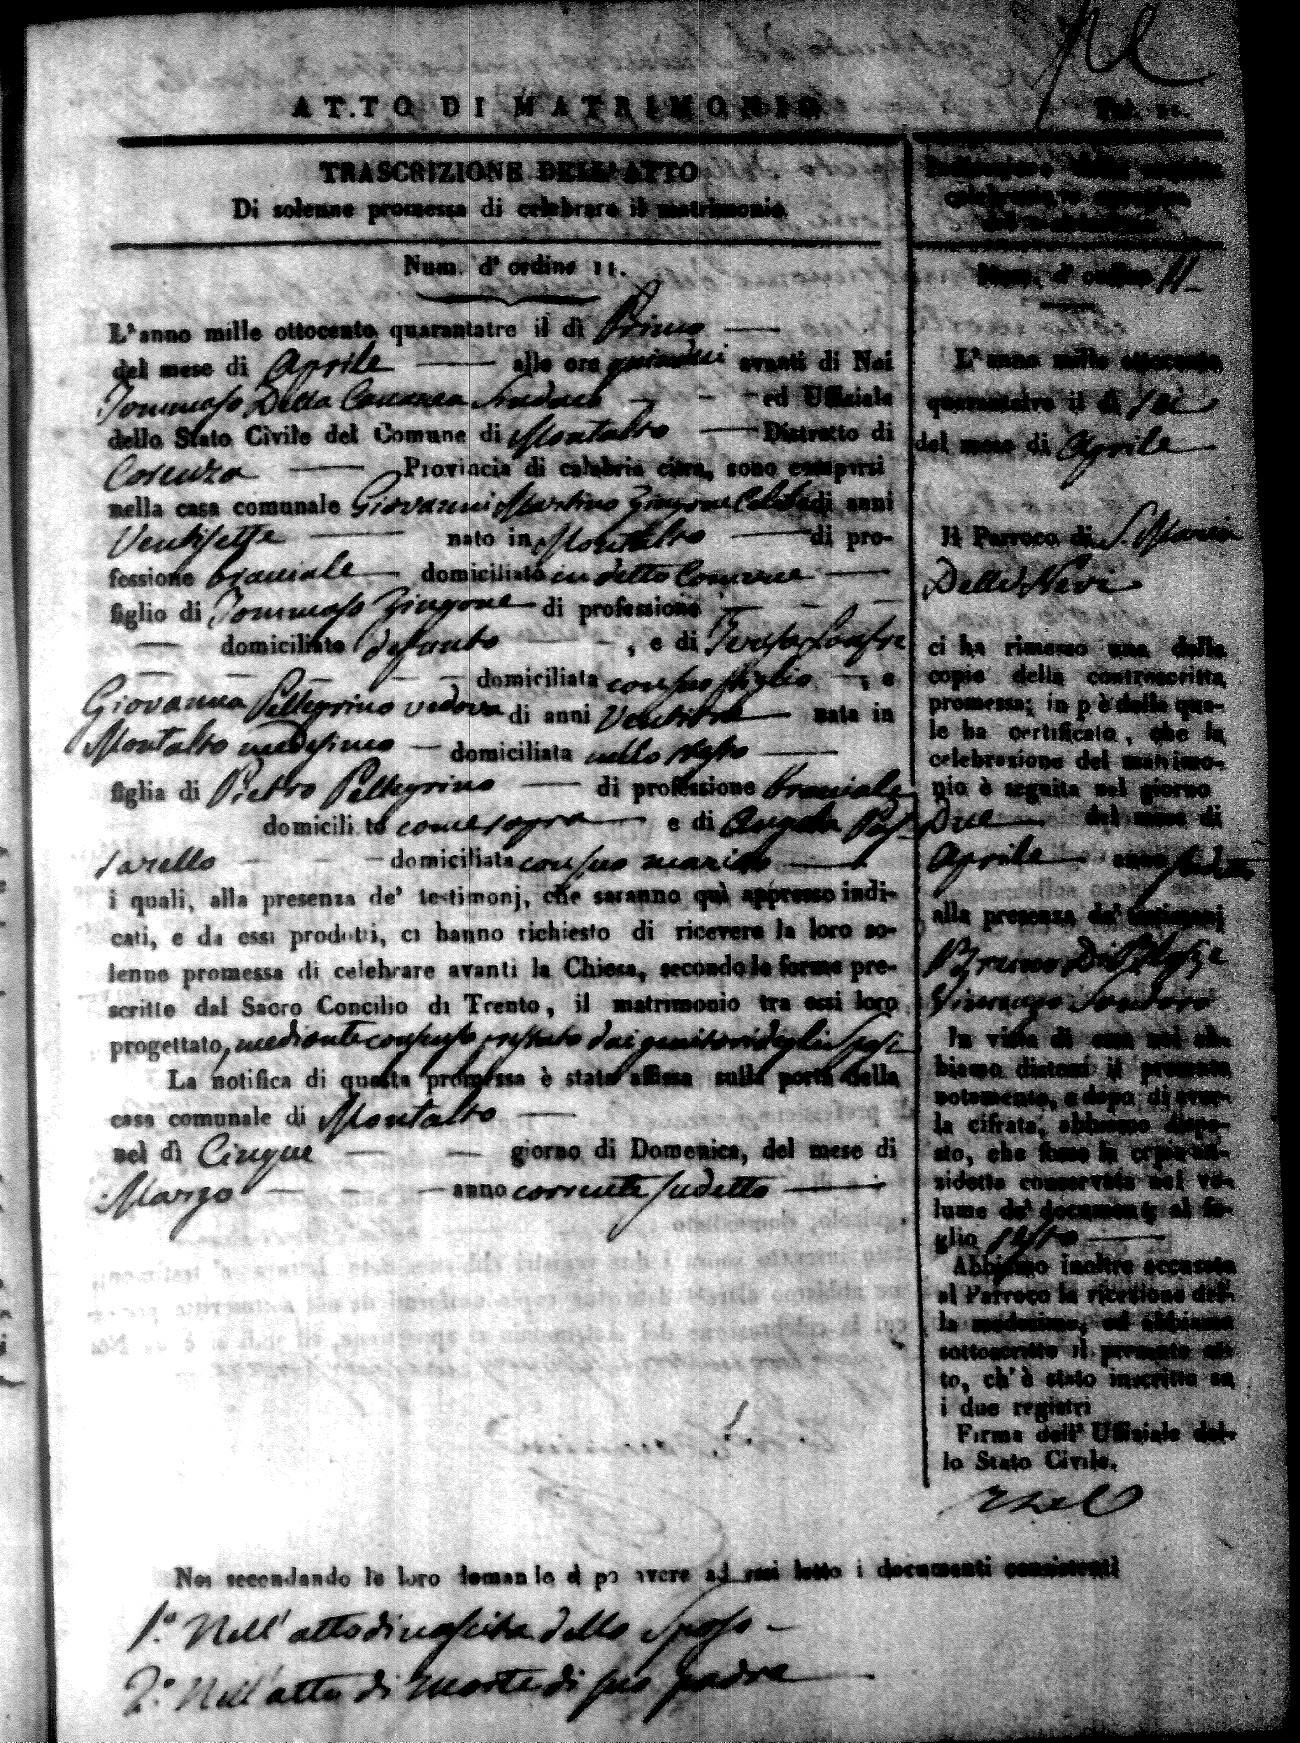 ATTO DI MATRIMONIO
TRASCRIZIONE DELL'ATTO
Di solenne promessa di celebrare il matrimonio
Num. d'ordine 11.
L'anno mille ottocento quarantatre il dì Primo
del mese di Aprile alle ore quindici avanti di Noi
Tommaso Della Sindaco ed Uffiziale
dello Stato Civile del Comune di Montalto Distretto di
Cosenza Provincia di calabria citra, sono comparsi
nella casa comunale Giovanni Martino Zingone Celibe di anni
Ventisette nato in Montalto di pro-
fessione bracciale domiciliato in detto Comune
figlio di Tommaso Zingone di professione
domiciliato defunto , e di Teresa
domiciliata con suo figlio , e
Giovanna Pellegrino vedova di anni nata in
Montalto medesimo domiciliata nello stesso
figlia di Pietro Pellegrino di professione bracciale
domicili to come sopra e di Angela
domiciliata con suo marito
i quali, alla presenza de' testimonj, che saranno quì appresso indi-
cati, e da essi prodotti, ci hanno richiesto di ricevere la loro so-
lenne promessa di celebrare avanti la Chiesa, secondo le forme pre-
scritte dal Sacro Concilio di Trento, il matrimonio tra essi loro
progettato, mediante consenso prestato dai genitori degli Sposi
La notifica di questa promessa è stata affissa sulla porta della
casa comunale di Montalto
nel dì Cinque giorno di Domenica, del mese di
Marzo anno corrente sudetto
Num. d'ordine 11
L'anno mille ottocento
quarantatre il dì sei
del mese di Aprile
Il Parroco di S. Maria
Delle Nevi
ci ha rimesso una delle
copie della controscritta
promessa; in p è della qua-
le ha certificato, che la
celebrazione del matrimo-
nio è seguita nel giorno
Due del mese di
Aprile anno sudetto
alla presenza de' testimonj
Vincenzo Santoro
In vista di essa noi ab-
biamo disteso il presente
notamento, e dopo di aver-
la cifrata, abbiamo dispo-
sto, che fosse la copia an-
zidetta conservata nel vo-
lume de' documenti al fo-
glio sesto
Abbiamo inoltre accusata
al Parroco la ricezione del-
la medesima, ed abbiamo
sottoscritto il presente at-
to, ch' è stato inscritto su
i due registri
Firma dell' Uffiziale del-
lo Stato Civile.
Noi secondando le loro domande d po avere ad essi letto i documenti consistenti
1.° Nell' atto di nascita dello Sposo
2.° Nell' atto di morte di suo padre